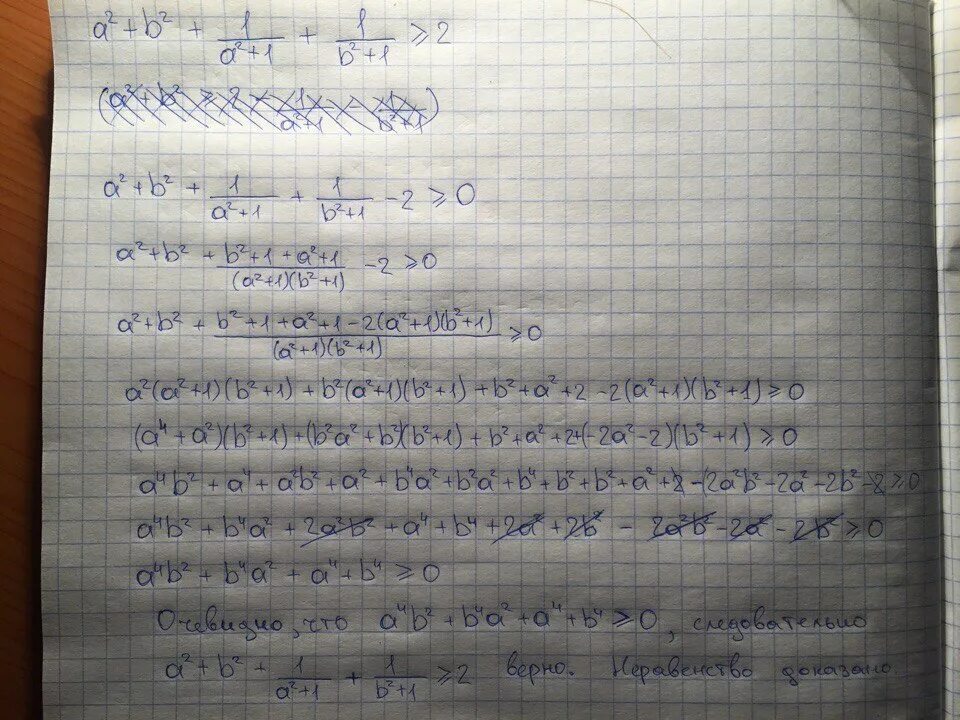 a² + b² + 1/(a²+1) + 1/(b²+1) ⩾ 2
(a² + b² ⩾ 2 - 1/(a²+1) - 1/(b²+1))
a² + b² + 1/(a²+1) + 1/(b²+1) - 2 ⩾ 0
a² + b² + (b²+1+a²+1)/((a²+1)(b²+1)) - 2 ⩾ 0
a² + b² + (b²+1+a²+1-2(a²+1)(b²+1))/((a²+1)(b²+1)) ⩾ 0
a²(a²+1)(b²+1) + b²(a²+1)(b²+1) + b² + a² + 2 - 2(a²+1)(b²+1) ⩾ 0
(a⁴ + a²)(b²+1) + (b²a² + b²)(b²+1) + b² + a² + 2 + (-2a²-2)(b²+1) ⩾ 0
a⁴b² + a⁴ + a²b² + a² + b⁴a² + b²a² + b⁴ + b² + b² + a² + 2 - 2a²b² - 2a² - 2b² - 2 ⩾ 0
a⁴b² + b⁴a² + 2a²b² + a⁴ + b⁴ + 2a² + 2b² - 2a²b² - 2a² - 2b² ⩾ 0
a⁴b² + b⁴a² + a⁴ + b⁴ ⩾ 0
Очевидно, что a⁴b² + b⁴a² + a⁴ + b⁴ ⩾ 0, следовательно
a² + b² + 1/(a²+1) + 1/(b²+1) ⩾ 2 верно. Неравенство доказано.